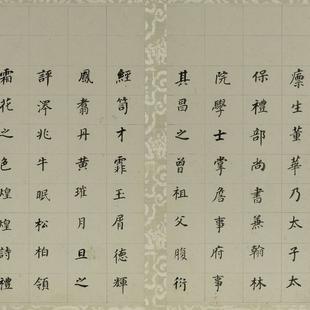 廩生董華乃太子太
保禮部尚書兼翰林
院學士掌詹事府事
其昌之曾祖父腹衍
經笥才霏玉屑德輝
鳳翥丹黄璀月旦之
評澤兆牛眠松柏領
霜花之色煌煌詩禮